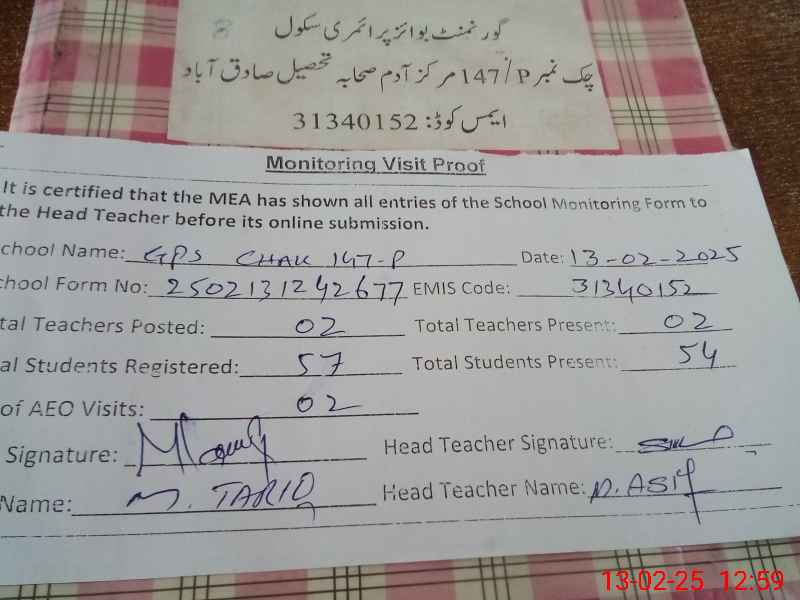 گورنمنٹ بوائز پرائمری سکول
چک نمبر 147/P مرکز آدم صحابہ تحصیل صادق آباد
ایمس کوڈ: 31340152
Monitoring Visit Proof
It is certified that the MEA has shown all entries of the School Monitoring Form to
the Head Teacher before its online submission.
chool Name: GPS CHAK 147-P Date: 13-02-2025
chool Form No: 2502131242677 EMIS Code: 31340152
tal Teachers Posted: 02 Total Teachers Present: 02
al Students Registered: 57 Total Students Present: 54
of AEO Visits: 02
Signature: Head Teacher Signature:
Name: M. TARIQ Head Teacher Name: M. ASIF
13-02-25 12:59